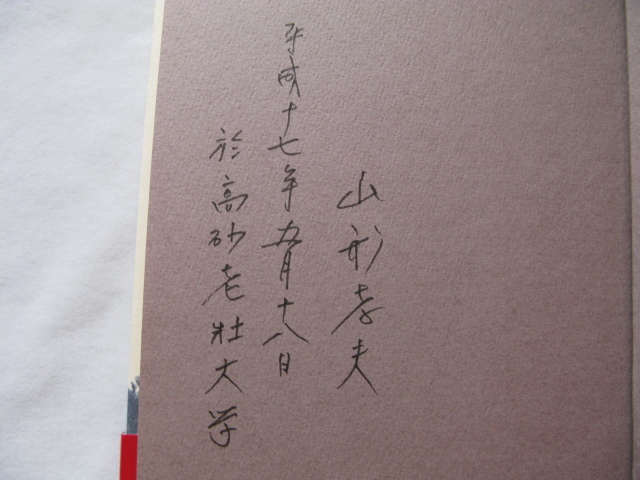 山形孝夫
平成十七年五月十八日
於高砂老壮大学